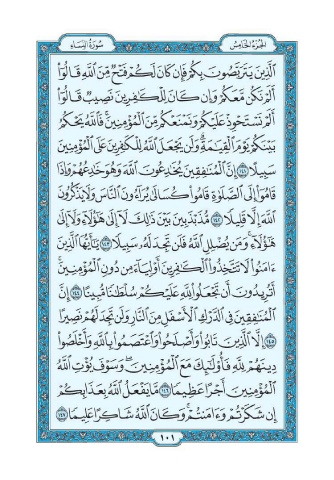 سُورَةُ النِّسَاءِ الجُزْءُ الخَامِسُ
ٱلَّذِينَ يَتَرَبَّصُونَ بِكُمْ فَإِن كَانَ لَكُمْ فَتْحٌ مِّنَ ٱللَّهِ قَالُوٓا۟
أَلَمْ نَكُن مَّعَكُمْ وَإِن كَانَ لِلْكَٰفِرِينَ نَصِيبٌ قَالُوٓا۟
أَلَمْ نَسْتَحْوِذْ عَلَيْكُمْ وَنَمْنَعْكُم مِّنَ ٱلْمُؤْمِنِينَ ۚ فَٱللَّهُ يَحْكُمُ
بَيْنَكُمْ يَوْمَ ٱلْقِيَٰمَةِ ۗ وَلَن يَجْعَلَ ٱللَّهُ لِلْكَٰفِرِينَ عَلَى ٱلْمُؤْمِنِينَ
سَبِيلًا ١٤١ إِنَّ ٱلْمُنَٰفِقِينَ يُخَٰدِعُونَ ٱللَّهَ وَهُوَ خَٰدِعُهُمْ وَإِذَا
قَامُوٓا۟ إِلَى ٱلصَّلَوٰةِ قَامُوا۟ كُسَالَىٰ يُرَآءُونَ ٱلنَّاسَ وَلَا يَذْكُرُونَ
ٱللَّهَ إِلَّا قَلِيلًا ١٤٢ مُّذَبْذَبِينَ بَيْنَ ذَٰلِكَ لَآ إِلَىٰ هَٰٓؤُلَآءِ وَلَآ إِلَىٰ
هَٰٓؤُلَآءِ ۚ وَمَن يُضْلِلِ ٱللَّهُ فَلَن تَجِدَ لَهُۥ سَبِيلًا ١٤٣ يَٰٓأَيُّهَا ٱلَّذِينَ
ءَامَنُوا۟ لَا تَتَّخِذُوا۟ ٱلْكَٰفِرِينَ أَوْلِيَآءَ مِن دُونِ ٱلْمُؤْمِنِينَ ۚ
أَتُرِيدُونَ أَن تَجْعَلُوا۟ لِلَّهِ عَلَيْكُمْ سُلْطَٰنًا مُّبِينًا ١٤٤ إِنَّ
ٱلْمُنَٰفِقِينَ فِى ٱلدَّرْكِ ٱلْأَسْفَلِ مِنَ ٱلنَّارِ وَلَن تَجِدَ لَهُمْ نَصِيرًا
١٤٥ إِلَّا ٱلَّذِينَ تَابُوا۟ وَأَصْلَحُوا۟ وَٱعْتَصَمُوا۟ بِٱللَّهِ وَأَخْلَصُوا۟
دِينَهُمْ لِلَّهِ فَأُو۟لَٰٓئِكَ مَعَ ٱلْمُؤْمِنِينَ ۖ وَسَوْفَ يُؤْتِ ٱللَّهُ
ٱلْمُؤْمِنِينَ أَجْرًا عَظِيمًا ١٤٦ مَّا يَفْعَلُ ٱللَّهُ بِعَذَابِكُمْ
إِن شَكَرْتُمْ وَءَامَنتُمْ ۚ وَكَانَ ٱللَّهُ شَاكِرًا عَلِيمًا ١٤٧
١٠١